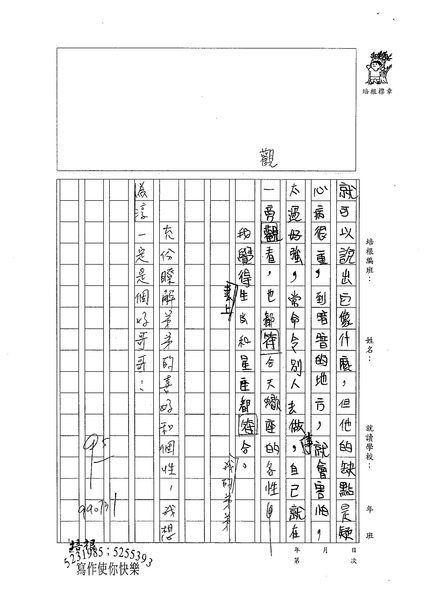 培根標章
培根編班：　姓名：　就讀學校：　年　班
年　月　日
第　次
觀
就可以說出它像什麼，但他的缺點是疑
心病很重，到暗暗的地方，就會害怕，
太過好強，常命令別人去做事，自己就在
一旁觀看，也都符合天蠍座的各性！
我覺得生肖和星座都符合。
我的弟弟
充份瞭解弟弟的喜好和個性，我想
一定是個好哥哥！
95
990731
培根
5231985；5255393
寫作使你快樂